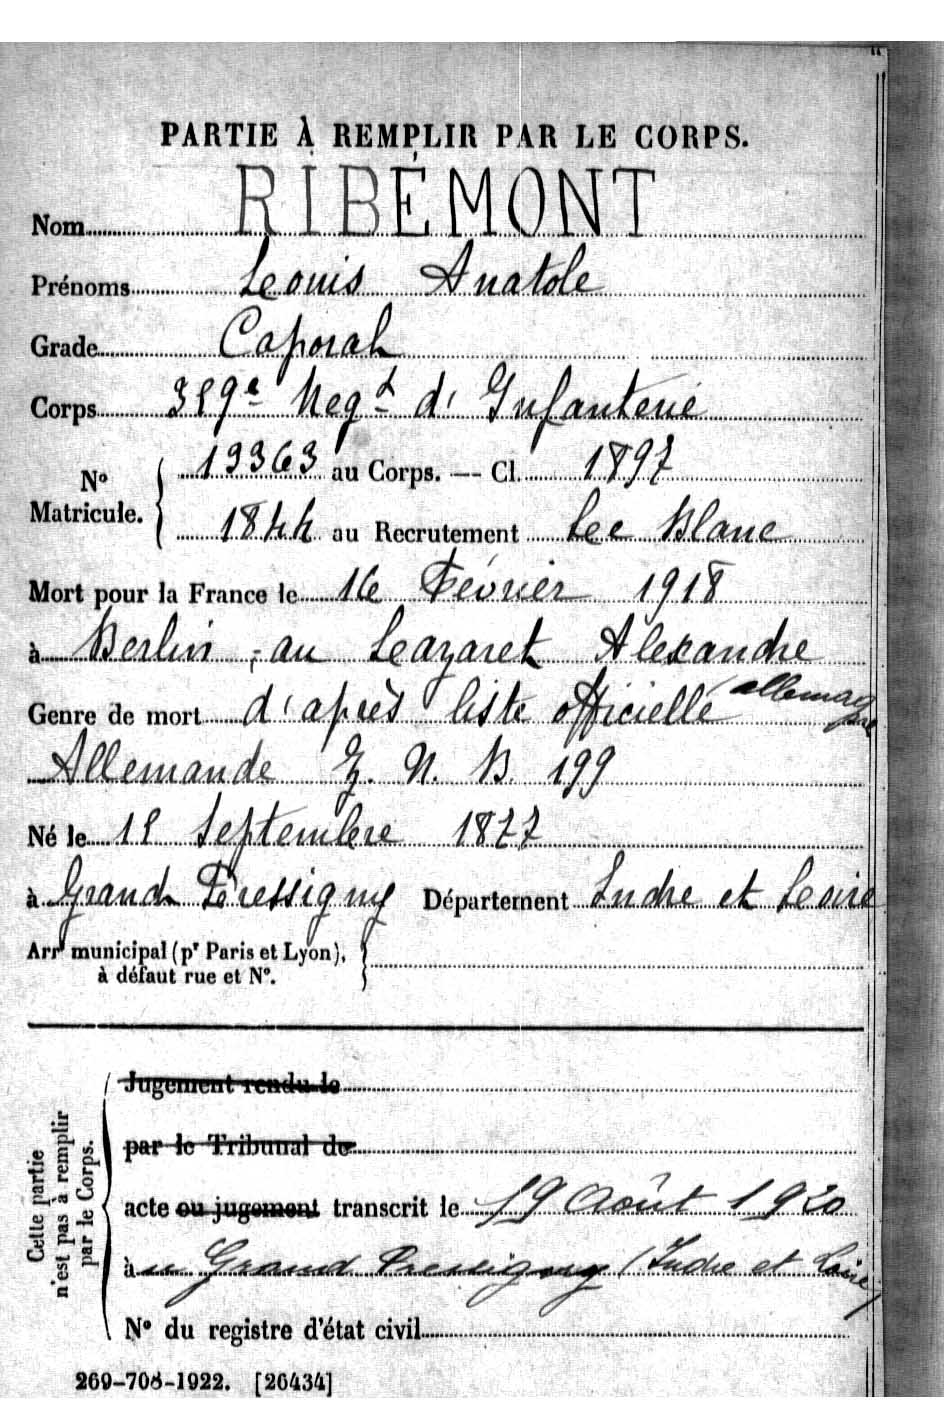 PARTIE À REMPLIR PAR LE CORPS.
Nom RIBÉMONT
Prénoms Louis Anatole
Grade Caporal
Corps 359e Regt d'Infanterie
No Matricule. 19363 au Corps. — Cl. 1897
1844 au Recrutement Le Blanc
Mort pour la France le 16 Février 1918
à Berlin, au Lazaret Alexandre
allemagne
Genre de mort d'après liste officielle
Allemande Z. N. B. 199
Né le 15 Septembre 1877
à Grand Pressigny Département Indre et Loire
Arrt municipal (pr Paris et Lyon),
à défaut rue et No.
Cette partie
n'est pas à remplir
par le Corps.
Jugement rendu le
par le Tribunal de
acte ou jugement transcrit le 19 Août 1920
au Grand Pressigny (Indre et Loire)
No du registre d'état civil
269-708-1922. [26434]